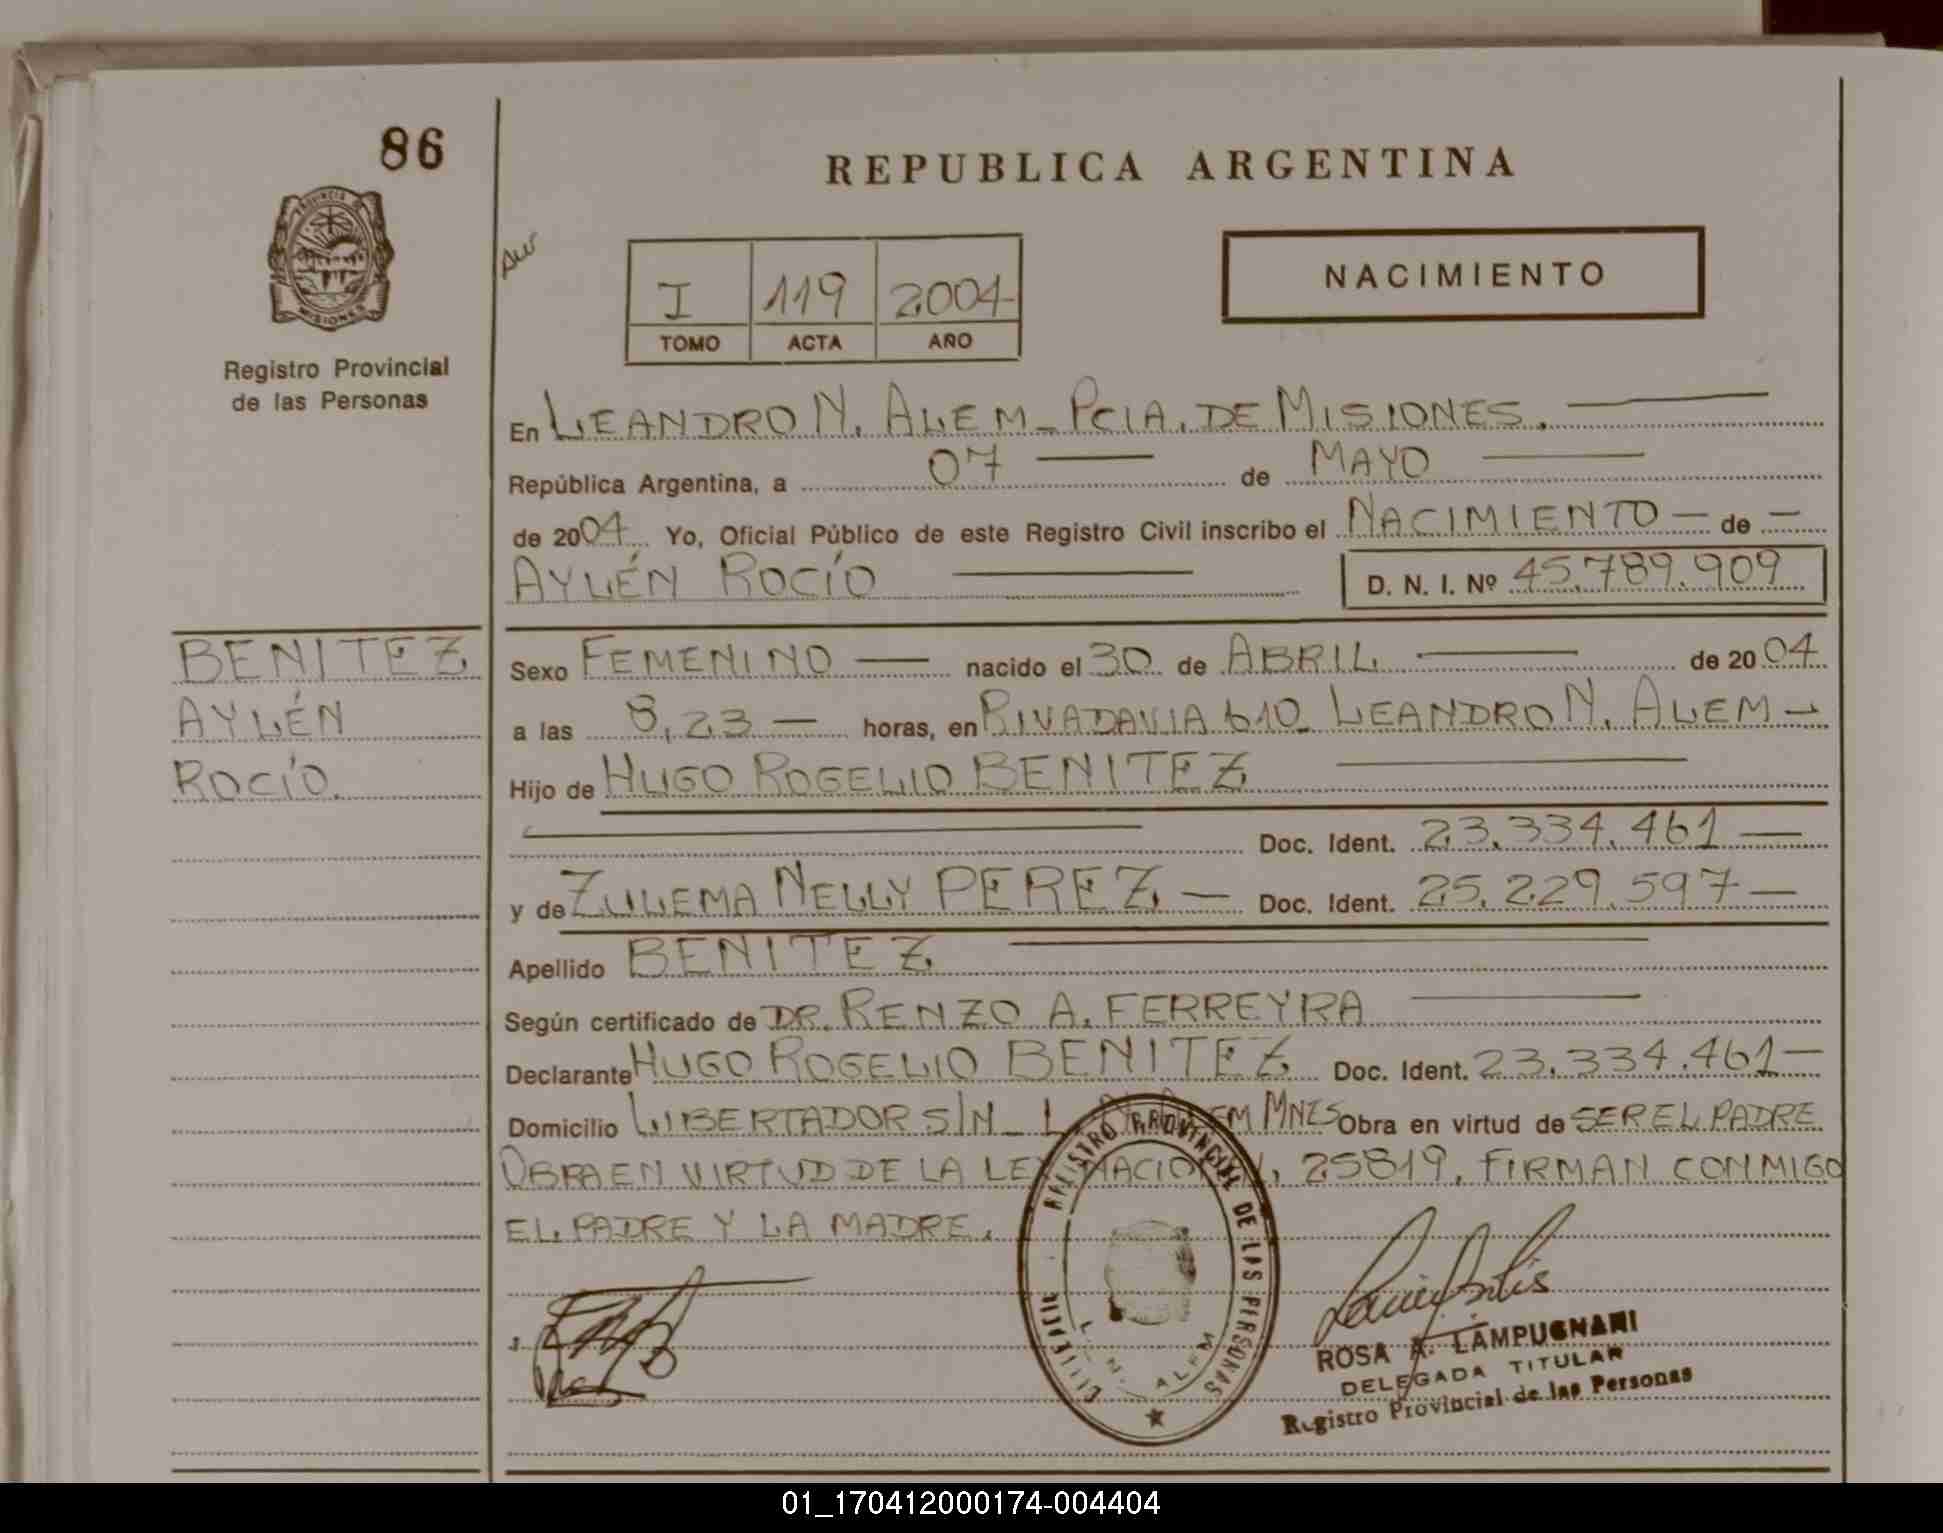 86
REPUBLICA ARGENTINA
PROVINCIA DE
MISIONES
Registro Provincial
de las Personas
I 119 2004
TOMO ACTA AÑO
NACIMIENTO
En LEANDRO N. ALEM_ PCIA. DE MISIONES.
República Argentina, a 07 de MAYO
de 2004 Yo, Oficial Público de este Registro Civil inscribo el NACIMIENTO de
AYLÉN ROCÍO D. N. I. Nº 45.789.909
BENITEZ
AYLÉN
ROCÍO.
Sexo FEMENINO nacido el 30 de ABRIL de 2004
a las 8,23 horas, en RIVADAVIA 610_ LEANDRO N. ALEM
Hijo de HUGO ROGELIO BENITEZ
Doc. Ident. 23.334.461
y de ZULEMA NELLY PEREZ Doc. Ident. 25.229.597
Apellido BENITEZ
Según certificado de DR. RENZO A. FERREYRA
Declarante HUGO ROGELIO BENITEZ Doc. Ident. 23.334.461
Domicilio LIBERTADOR S/N_ L. N. ALEM MNES Obra en virtud de SER EL PADRE
OBRA EN VIRTUD DE LA LEY NACIONAL, 25819, FIRMAN CONMIGO
EL PADRE Y LA MADRE.
REGISTRO PROVINCIAL DE LAS PERSONAS
L. N. ALEM
ROSA A. LAMPUGNANI
DELEGADA TITULAR
Registro Provincial de las Personas
01_170412000174-004404